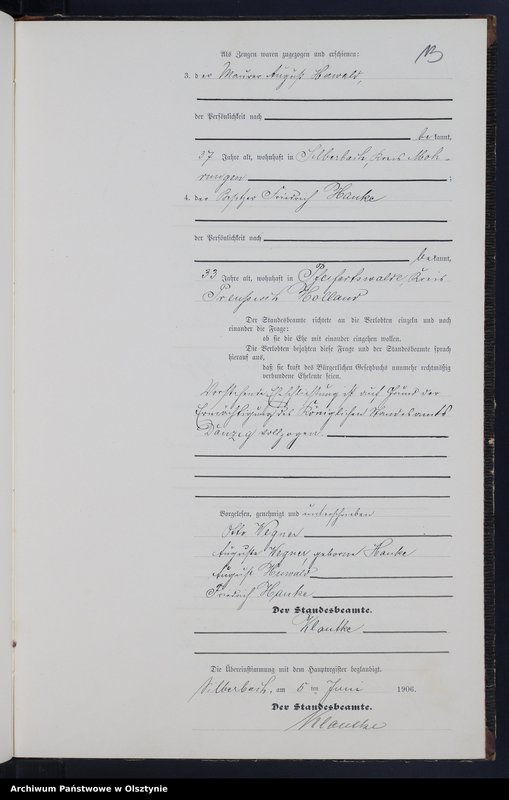 Als Zeugen waren zugezogen und erschienen:
13
3. der Maurer August Hewald,
der Persönlichkeit nach
bekannt,
37 Jahre alt, wohnhaft in Silberbach, Kreis Moh-
rungen ;
4. der Friedrich Hanke
der Persönlichkeit nach
bekannt,
33 Jahre alt, wohnhaft in Pfeifertswalde, Kreis
Preußisch Holland
Der Standesbeamte richtete an die Verlobten einzeln und nach
einander die Frage:
ob sie die Ehe mit einander eingehen wollen.
Die Verlobten bejahten diese Frage und der Standesbeamte sprach
hierauf aus,
daß sie kraft des Bürgerlichen Gesetzbuchs nunmehr rechtmäßig
verbundene Eheleute seien.
Vorstehende Eheschließung ist auf Grund der
Ermächtigung des Königlichen Standesamts
Danzig vollzogen.
Vorgelesen, genehmigt und unterschrieben
Otto Wegner
Auguste Wegner, geborene Hanke
August Hewald
Friedrich Hanke
Der Standesbeamte.
Klautke
Die Übereinstimmung mit dem Hauptregister beglaubigt.
Silberbach, am 5 ten Juni 1906.
Der Standesbeamte.
Klautke
Archiwum Państwowe w Olsztynie